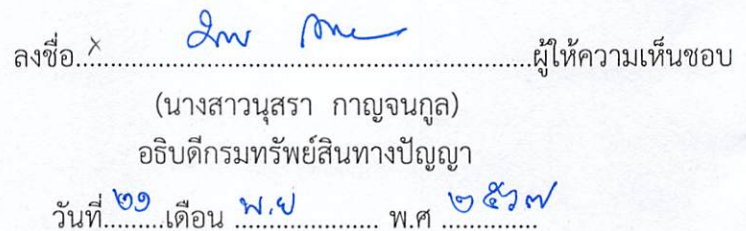 ลงชื่อ x ......................................................ผู้ให้ความเห็นชอบ
(นางสาวนุสรา กาญจนกูล)
อธิบดีกรมทรัพย์สินทางปัญญา
วันที่ ๒๑ เดือน พ.ย พ.ศ ๒๕๖๗